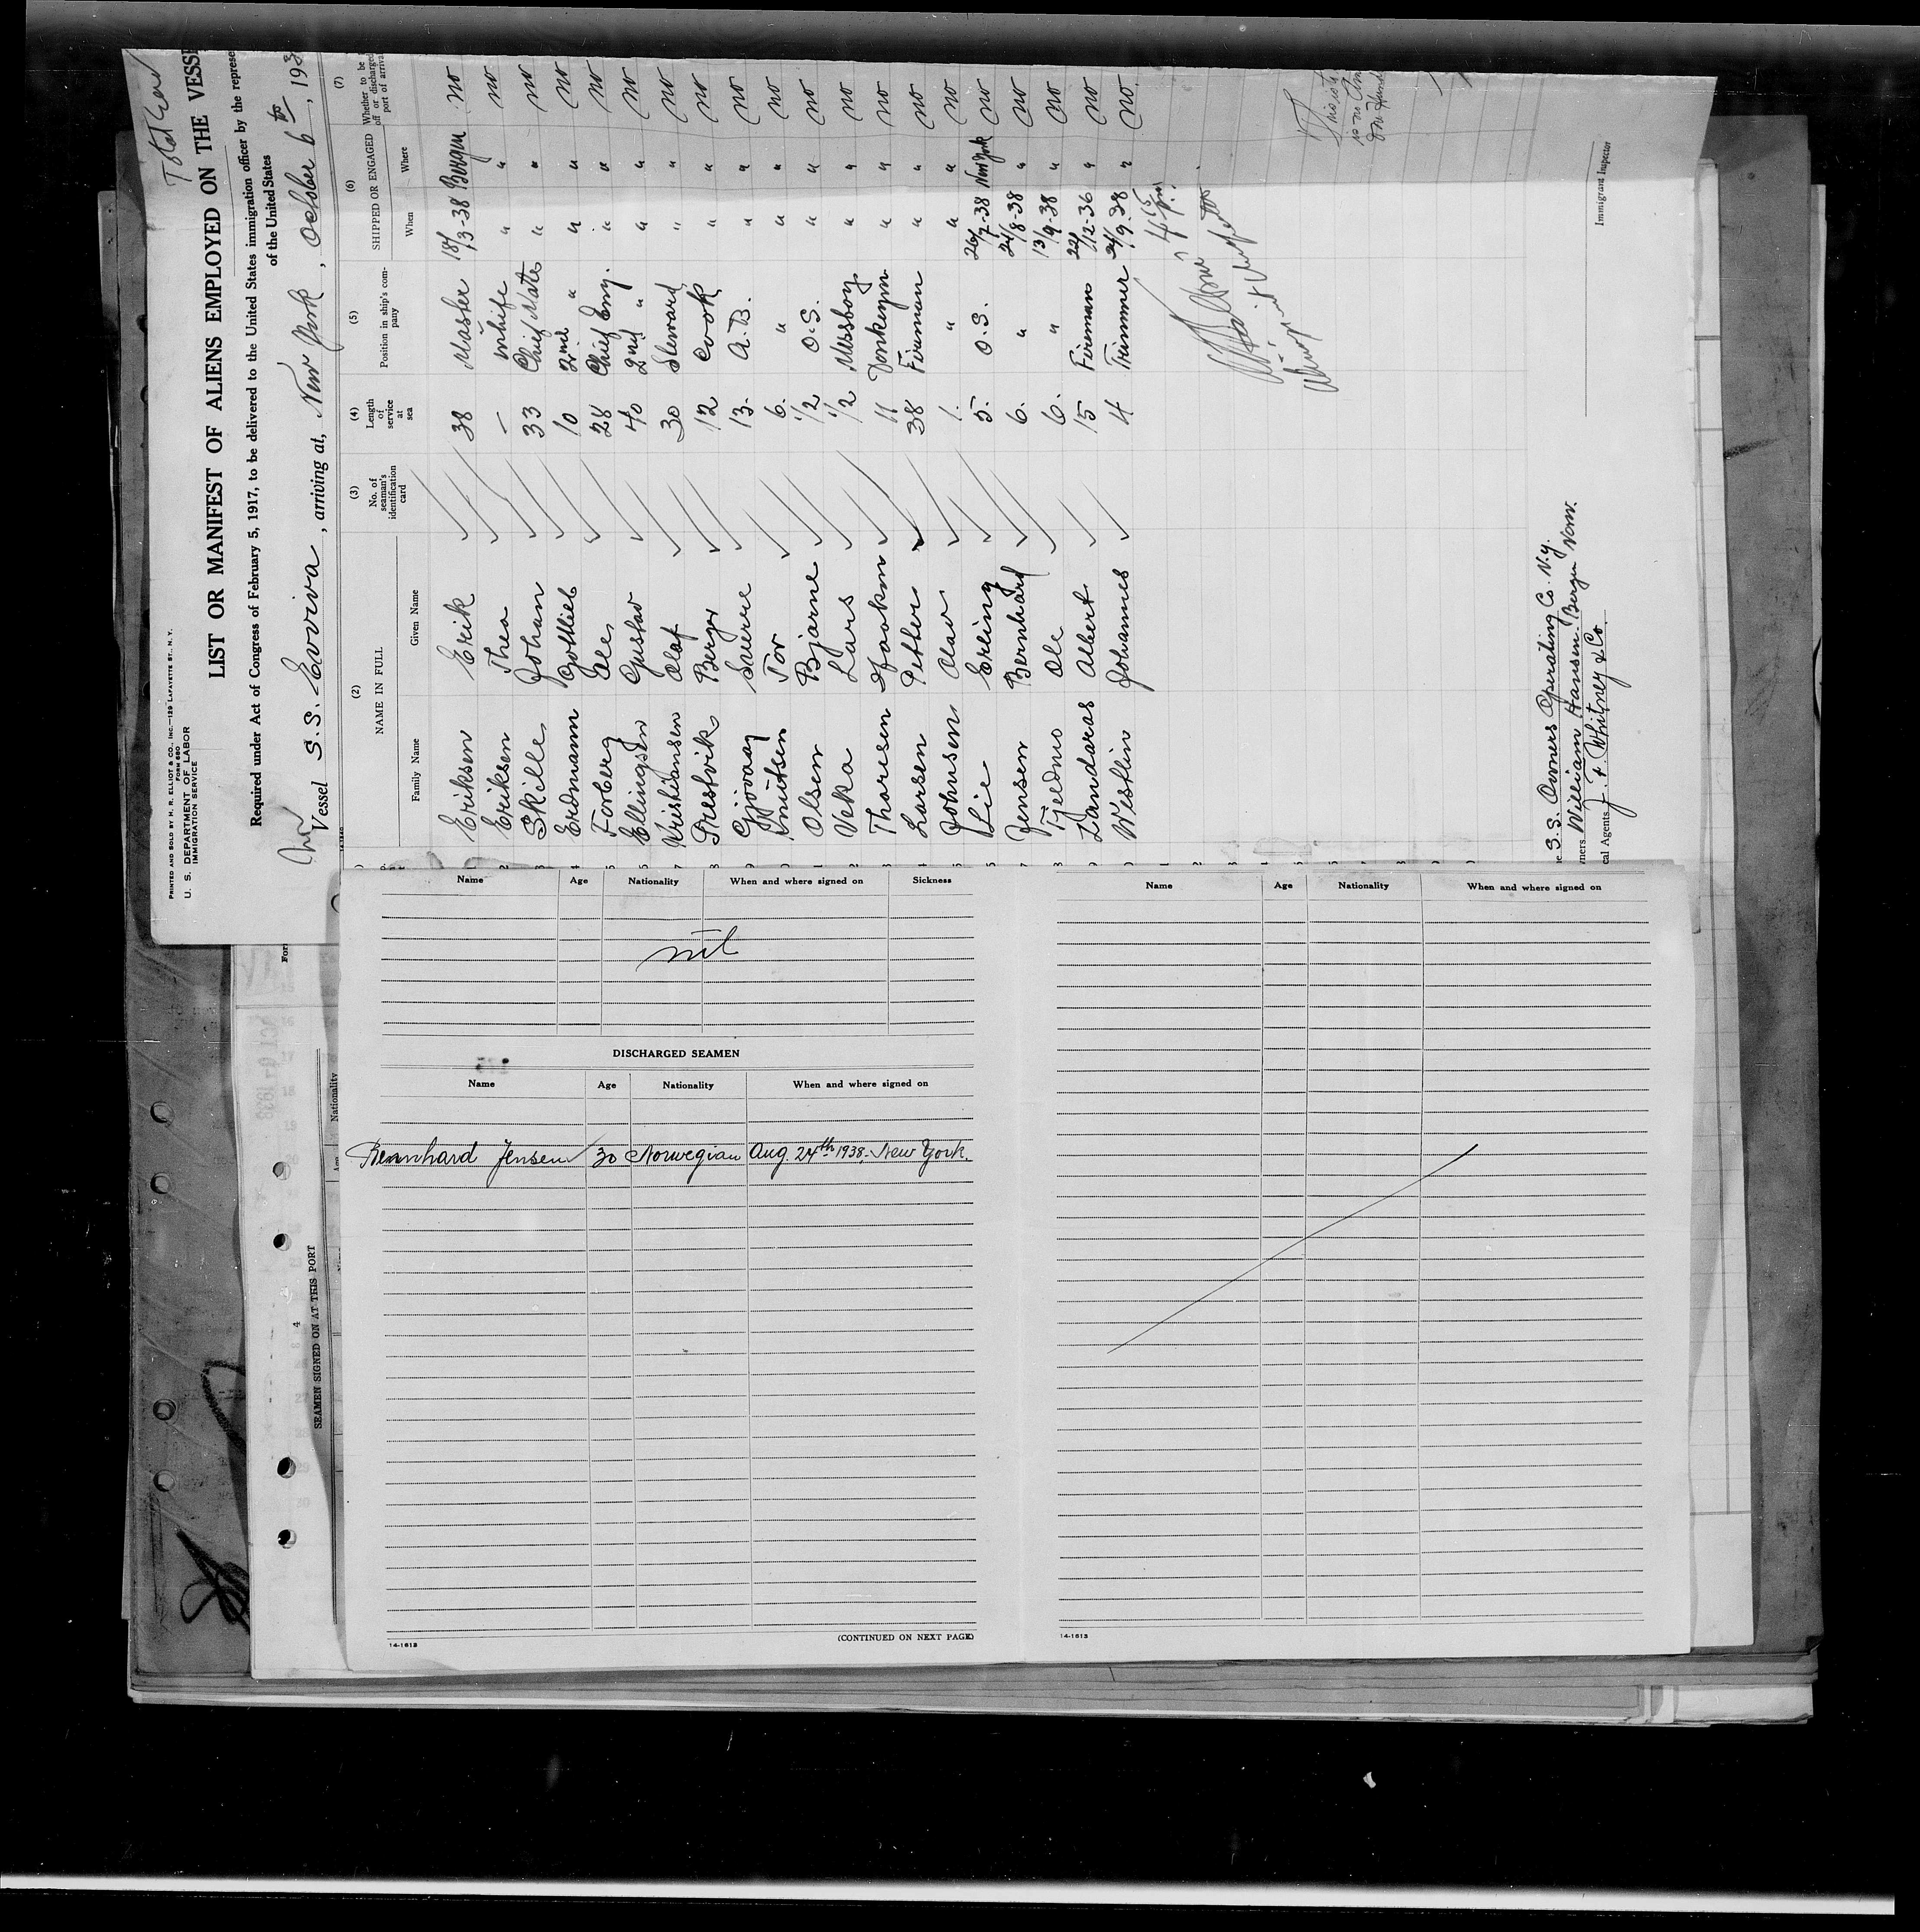 Total Crew
PRINTED AND SOLD BY M. R. ELLIOT & CO., INC.—129 LAFAYETTE ST., N. Y.
FORM 680
U. S. DEPARTMENT OF LABOR
IMMIGRATION SERVICE
LIST OR MANIFEST OF ALIENS EMPLOYED ON THE VESSE
Required under Act of Congress of February 5, 1917, to be delivered to the United States immigration officer by the represe
of the United States
Vessel S.S. Evviva, arriving at, New York, October 6th, 193
(2) NAME IN FULL (3) No. of seaman's identification card (4) Length of service at sea (5) Position in ship's company (6) SHIPPED OR ENGAGED (7) Whether to be off or discharged port of arrival
Family Name Given Name When Where
Eriksen Erik 38 Master 18/3-38 Bergen no
Eriksen Thea — m/wife " " no
Skille Johan 33 Chief Mate " " no
Erdmann Gottlieb 10 2nd " " " no
Forberg Ole 28 Chief Eng. " " no
Ellingsen Gustav 40 2nd " " " no
Kristiansen Olaf 30 Steward " " no
Prestvik Berger 12 Cook " " no
Gjøvaag Sverre 13. A.B. " " no
Knutsen Tor 6. " " " no
Olsen Bjarne 1/2 O.S. " " no
Veka Lars 1/2 Messboy " " no
Thoresen Haakon 11 Donkeym " " no
Larsen Petter 38 Fireman " " no
Johnsen Olav 1. " " " no
Lie Erling 5. O.S. 26/7-38 New York no
Jensen Bernhard 6. " 24/8-38 " no
Tjeldnes Ole 6. " 13/9-38 " no
Landaras Albert 15 Fireman 22/12-36 " no
Westlin Johannes 4 Trimmer 24/9-38 " no.
Immigrant Inspector
S.S. Owners Operating Co. N.Y.
ners William Hansen. Bergen Norw.
cal Agents J. F. Whitney & Co.
Name Age Nationality When and where signed on Sickness
nil
DISCHARGED SEAMEN
Name Age Nationality When and where signed on
Bernhard Jensen 30 Norwegian Aug. 24th 1938, New York.
14-1613
(CONTINUED ON NEXT PAGE)
Name Age Nationality When and where signed on
14-1613
4
SEAMEN SIGNED ON AT THIS PORT
Nationality